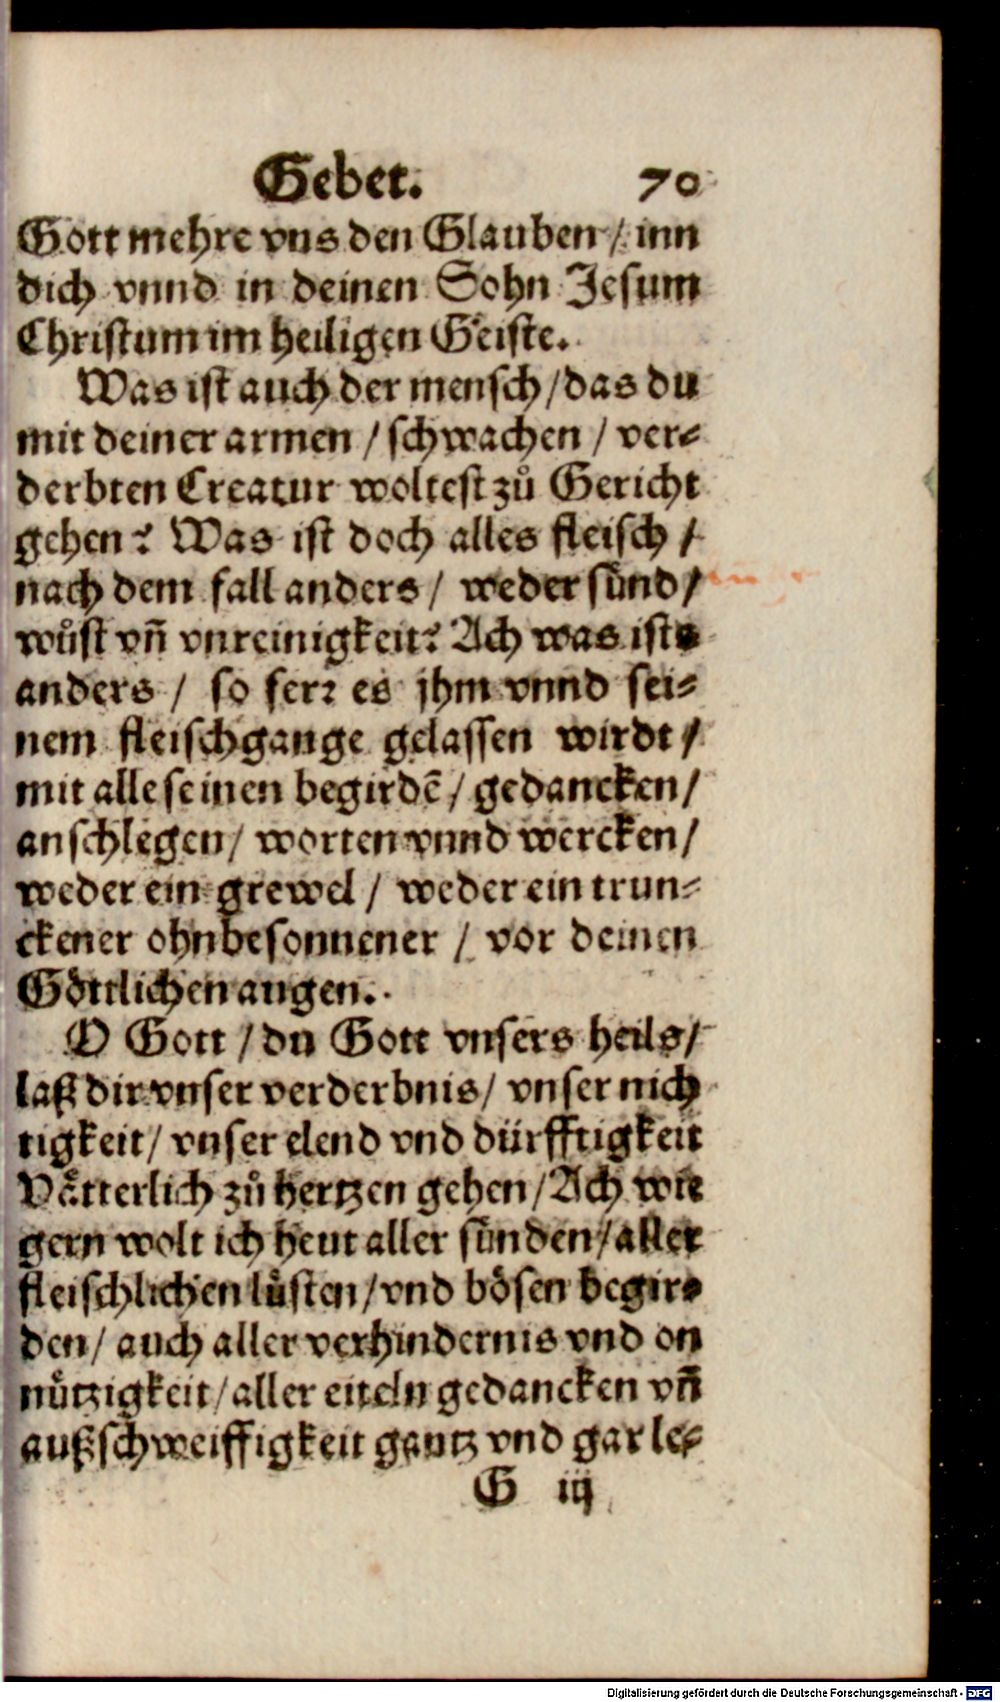 Gebet. 70
Gott mehre vns den Glauben / inn
dich vnnd in deinen Sohn Jesum
Christum im heiligen Geiste.
Was ist auch der mensch / das du
mit deiner armen / schwachen / ver⸗
derbten Creatur woltest zů Gericht
gehen? Was ist doch alles fleisch /
nach dem fall anders / weder sünd /
wůst vñ vnreinigkeit? Ach was ists
anders / so ferꝛ es jhm vnnd sei⸗
nem fleischgange gelassen wirdt /
mit alle seinen begirdē / gedancken /
anschlegen / worten vnnd wercken /
weder ein grewel / weder ein trun⸗
ckener ohnbesonnener / vor deinen
Göttlichen augen.
O Gott / du Gott vnsers heils /
laß dir vnser verderbnis / vnser nich
tigkeit / vnser elend vnd dürfftigkeit
Vätterlich zů hertzen gehen / Ach wie
gern wolt ich heut aller sünden / aller
fleischlichen lüsten / vnd bösen begir⸗
den / auch aller verhindernis vnd on
nützigkeit / aller eiteln gedancken vñ
außschweiffigkeit gantz vnd gar le⸗
G iij
Digitalisierung gefördert durch die Deutsche Forschungsgemeinschaft - DFG